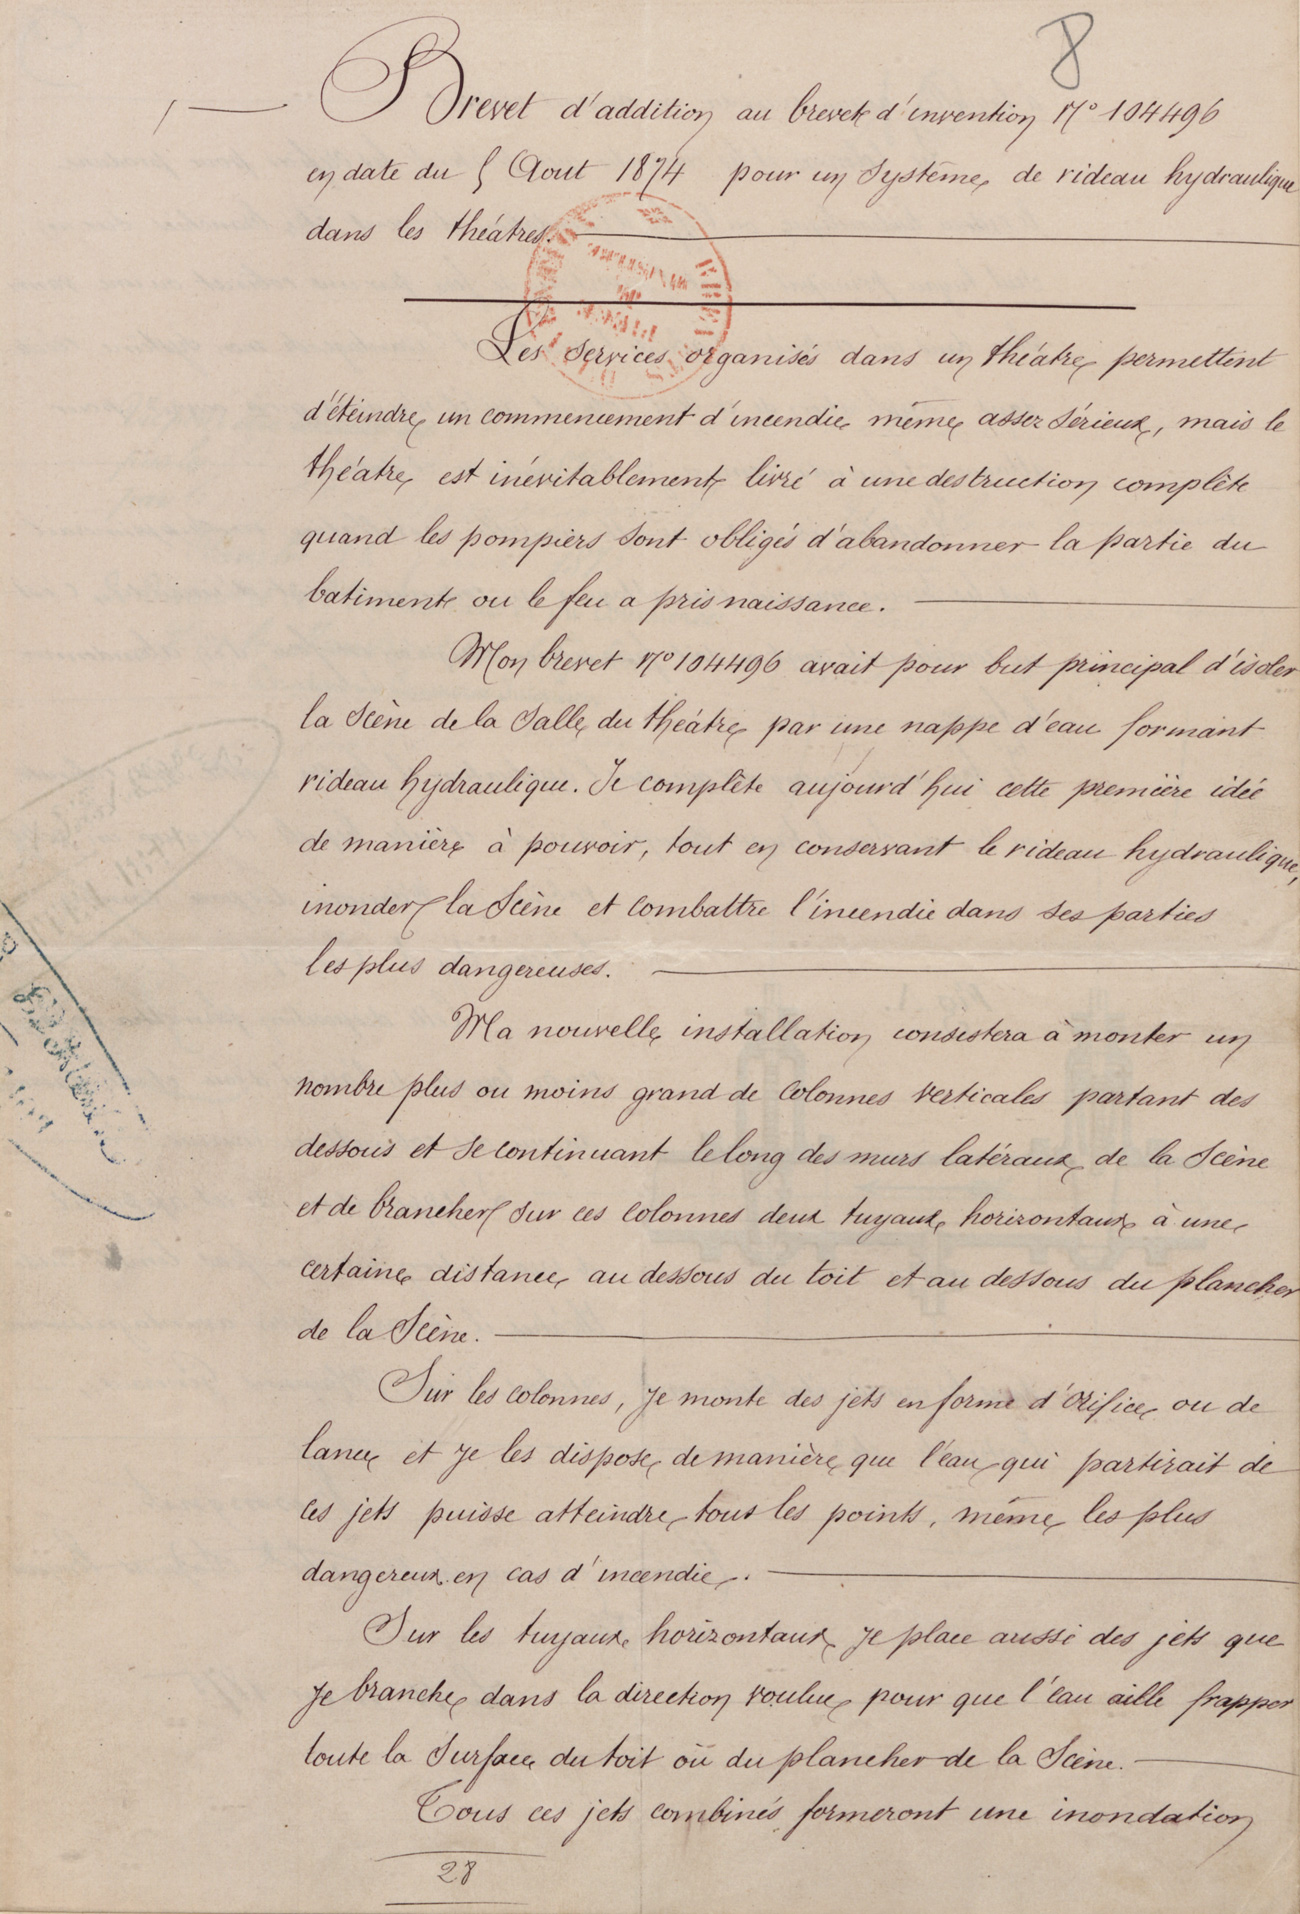 8
Brevet d'addition au brevet d'invention No 104496
en date du 5 Aout 1874 pour un Système de rideau hydraulique
dans les théâtres.
Les services organisés dans un théâtre permettent
d'éteindre un commencement d'incendie même assez sérieux, mais le
théâtre est inévitablement livré à une destruction complète
quand les pompiers sont obligés d'abandonner la partie du
batiment ou le feu a pris naissance.
Mon brevet No 104496 avait pour but principal d'isoler
la Scène de la Salle du théâtre par une nappe d'eau formant
rideau hydraulique. Je complète aujourd'hui cette première idée
de manière à pouvoir, tout en conservant le rideau hydraulique,
inonder la Scène et combattre l'incendie dans ses parties
les plus dangereuses.
Ma nouvelle installation consistera à monter un
nombre plus ou moins grand de colonnes verticales partant des
dessous et se continuant le long des murs latéraux de la Scène
et de brancher sur ces colonnes deux tuyaux horizontaux à une
certaine distance au dessous du toit et au dessous du plancher
de la Scène.
Sur les colonnes, je monte des jets en forme d'orifice ou de
lance et je les dispose de manière que l'eau qui partirait de
ces jets puisse atteindre tous les points, même les plus
dangereux en cas d'incendie.
Sur les tuyaux horizontaux je place aussi des jets que
je branche dans la direction voulue pour que l'eau aille frapper
toute la Surface du toit ou du plancher de la Scène.
Tous ces jets combinés formeront une inondation
28